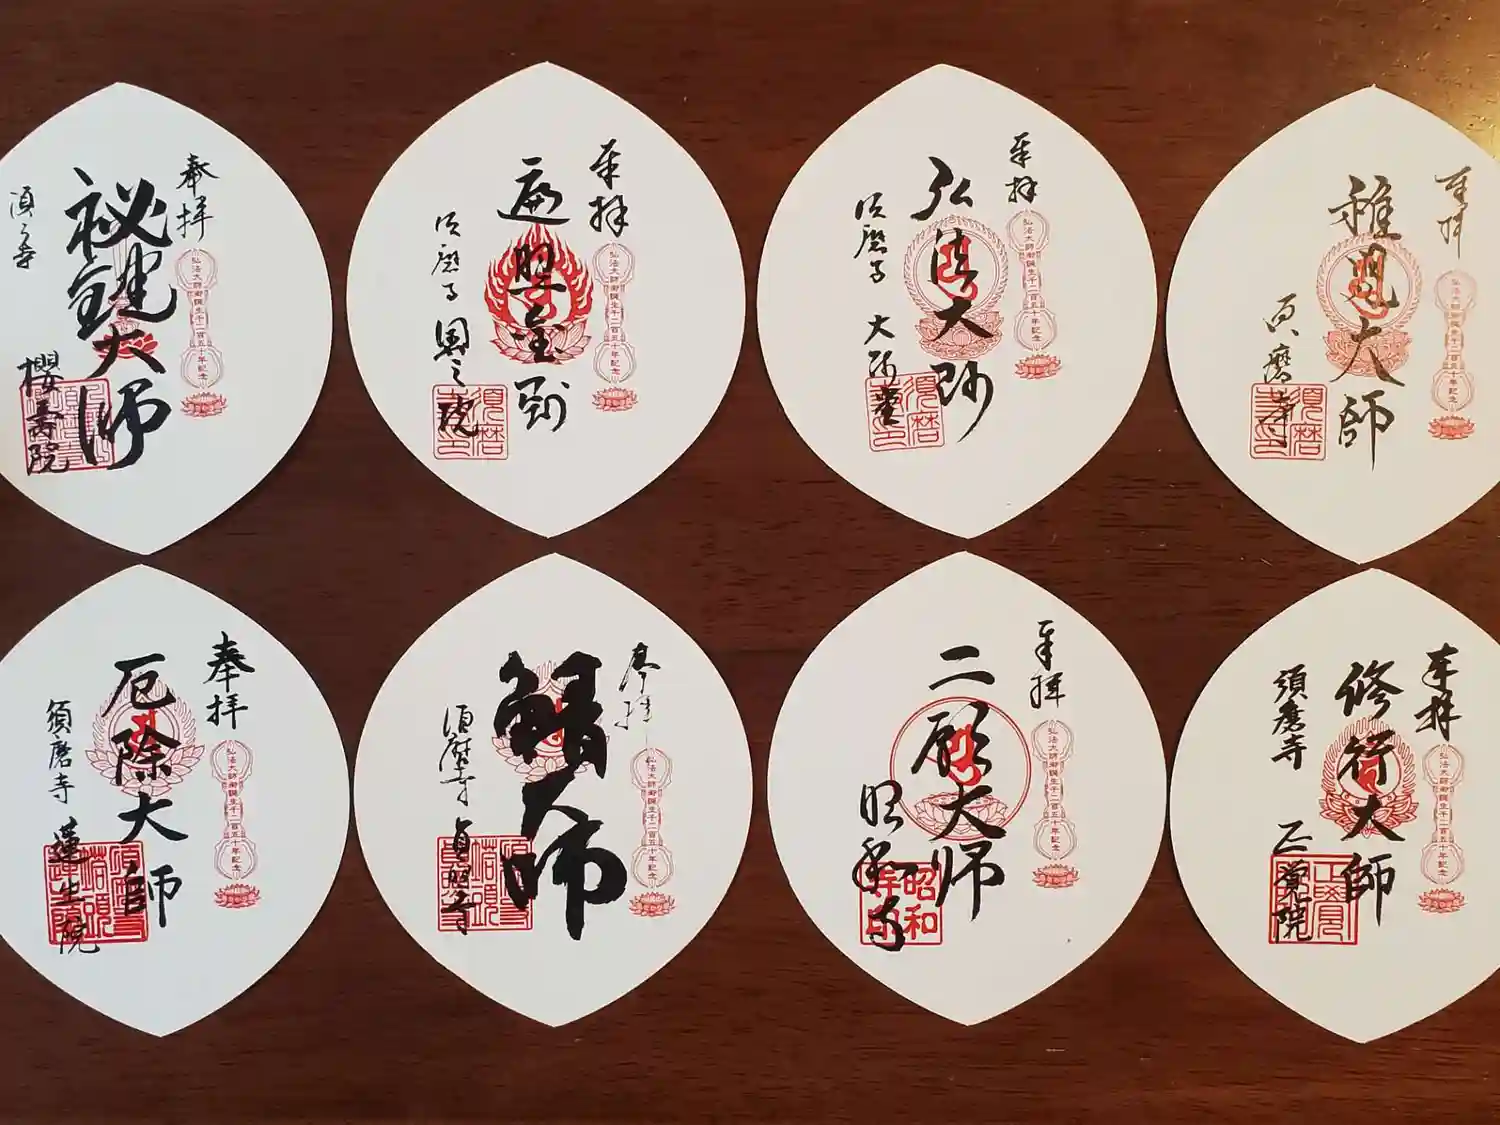 奉拝
弘法大師御誕生千二百五十年記念
秘鍵大師
須广寺
櫻寿院
奉拝
弘法大師御誕生千二百五十年記念
遍照金剛
須磨寺
奥之院
須磨
奉拝
弘法大師御誕生千二百五十年記念
弘法大師
須磨寺
大師堂
須磨
奉拝
弘法大師御誕生千二百五十年記念
稚児大師
須磨寺
須磨
奉拝
弘法大師御誕生千二百五十年記念
厄除大師
須磨寺
蓮生院
奉拝
弘法大師御誕生千二百五十年記念
大師
須磨寺
貞照寺
奉拝
弘法大師御誕生千二百五十年記念
二願大師
昭和寺
昭和
奉拝
弘法大師御誕生千二百五十年記念
修行大師
須磨寺
正覚院